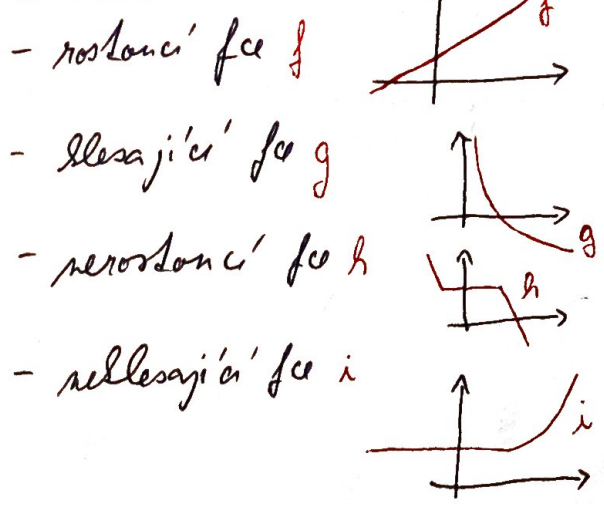 - rostoucí fce f
f
- klesající fce g
g
- nerostoucí fce h
h
- neklesající fce i
i